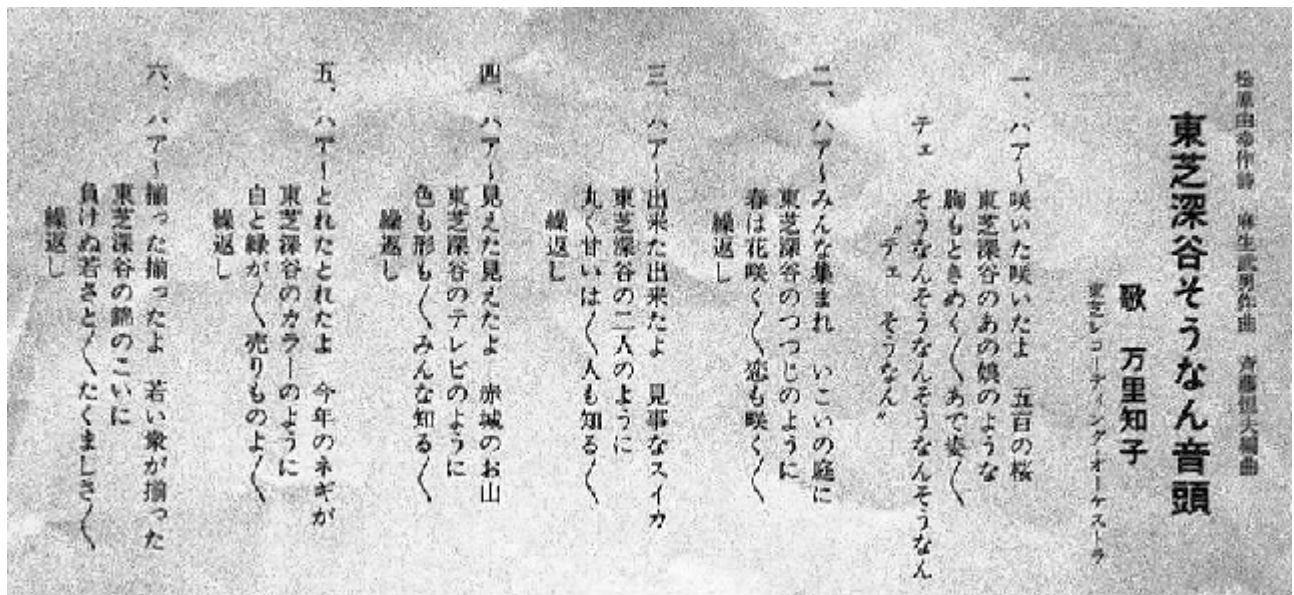 松原由幸作詩　麻生武男作曲　斉藤恒夫編曲
東芝深谷そうなん音頭
歌　万里知子
東芝レコーディング・オーケストラ
一、ハア〜咲いた咲いたよ　五百の桜
東芝深谷のあの娘のような
胸もときめく〱あで姿〱
テェ　そうなんそうなんそうなんそうなん
〝テェ　そうなん〟
二、ハア〜みんな集まれ　いこいの庭に
東芝深谷のつつじのように
春は花咲く〱恋も咲く〱
繰返し
三、ハア〜出来た出来たよ　見事なスイカ
東芝深谷の二人のように
丸く甘いは〱人も知る〱
繰返し
四、ハア〜見えた見えたよ　赤城のお山
東芝深谷のテレビのように
色も形も〱みんな知る〱
繰返し
五、ハアーとれたとれたよ　今年のネギが
東芝深谷のカラーのように
白と緑が〱売りものよ〱
繰返し
六、ハア〜揃った揃ったよ　若い衆が揃った
東芝深谷の錦のこいに
負けぬ若さと〱たくましさ〱
繰返し